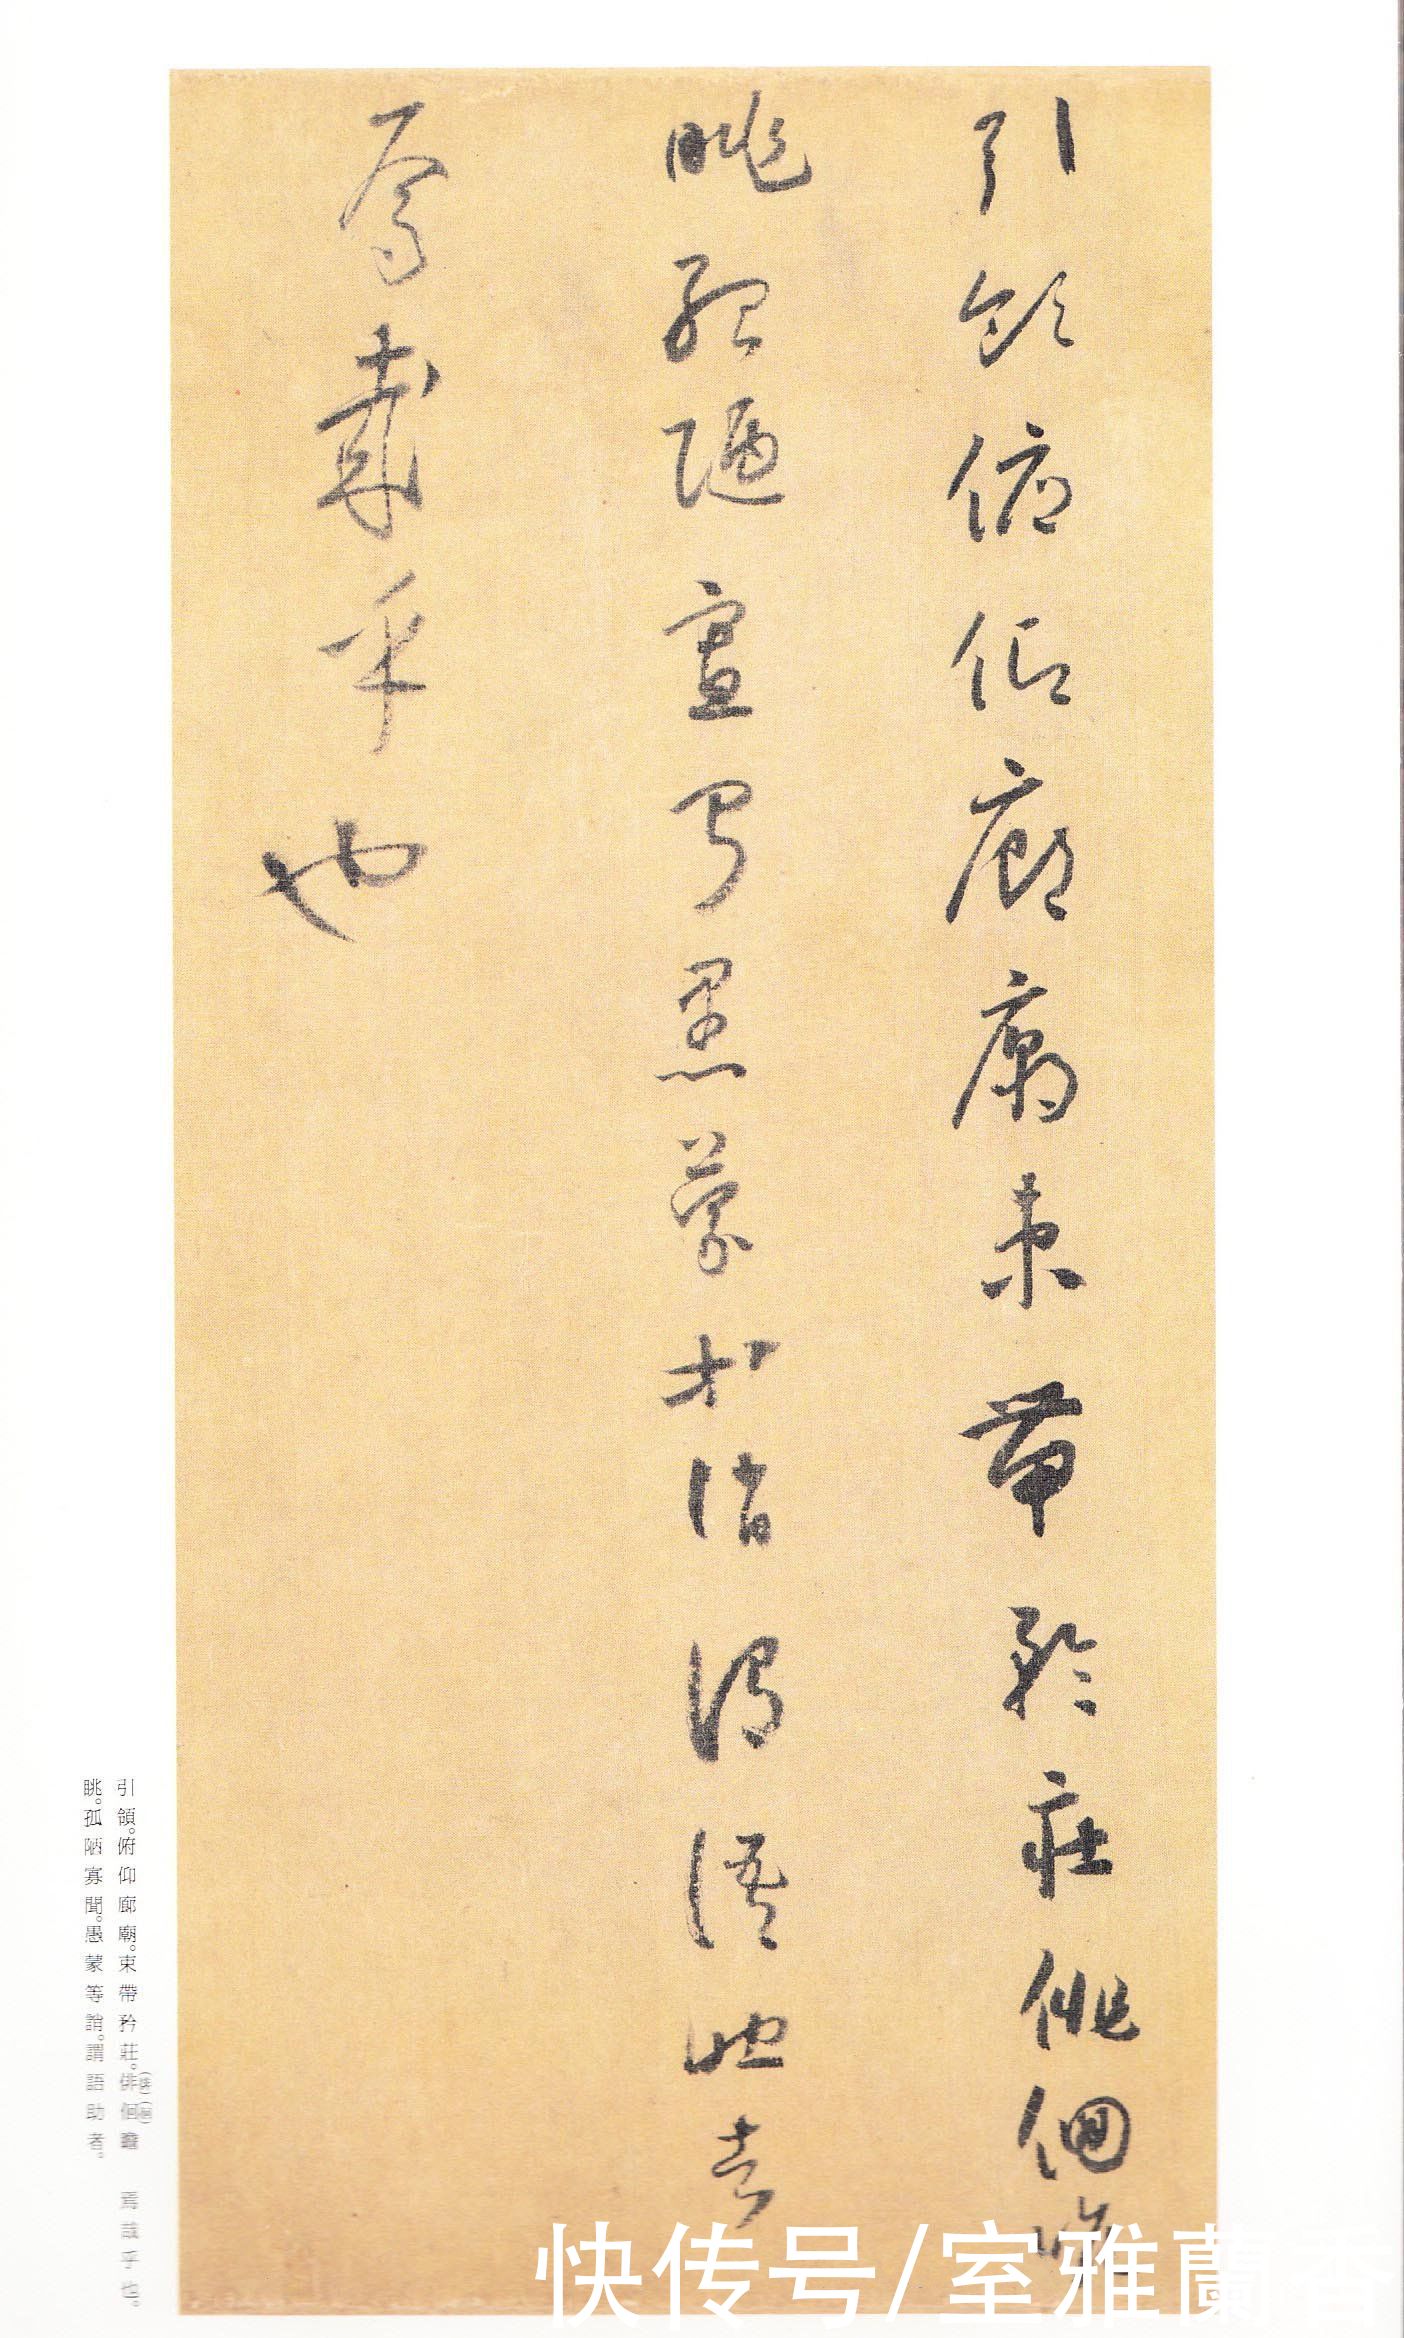 引領俯仰廊廟束帶矜莊俳佪瞻
眺孤陋寡聞愚蒙等誚謂語助者
焉哉乎也
引領。俯仰廊廟。束帶矜莊。俳(徘)佪(徊)瞻
眺。孤陋寡聞。愚蒙等誚。謂語助者。
焉哉乎也。
快传号/室雅蘭香